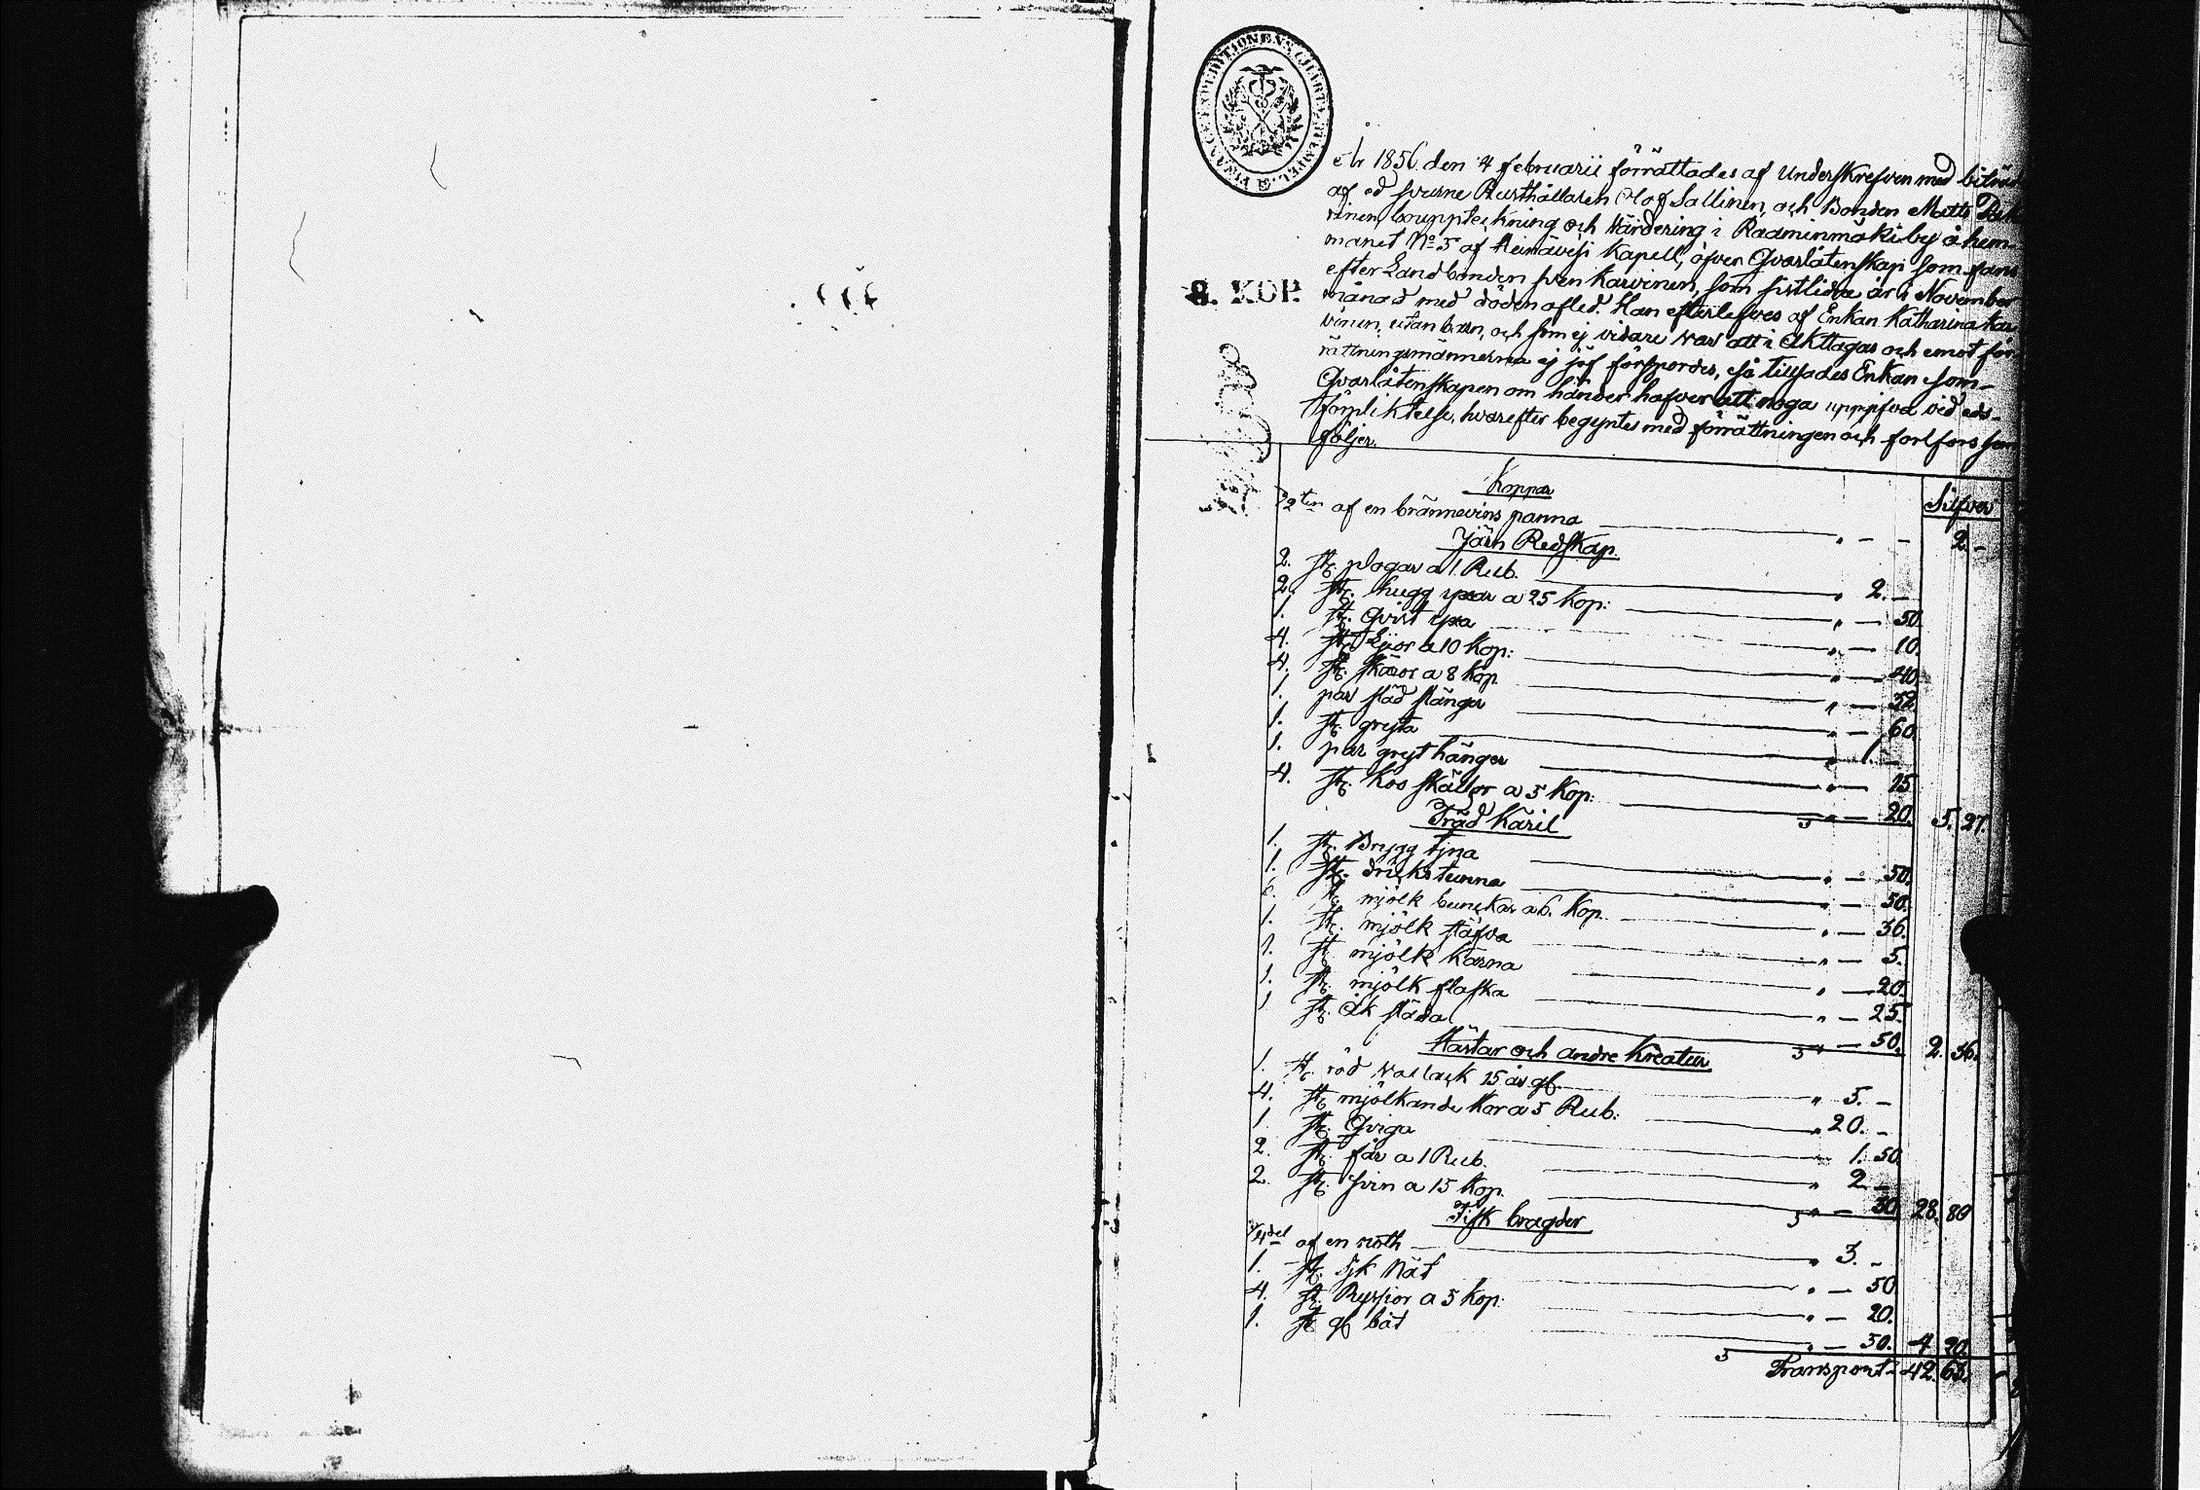 FINANCE EXPEDITIONENS CHARTÆ STEMPEL
8. KOP.
År 1856 den 4 februarii förrättades af Underskrefven med biträde
af ed svurne Rusthållaren Olof Sallinen, och Bonden Matts
vinen, bouppteckning och Värdering i Raaminmäki by å hem-
manet No 5 af Heinävesi Kapell, öfver Qvarlåtenskap som fans
efter Landbonden Sven Karvinen, som sistlidne år i November
månad med döden afled. Han efterlefves af Enkan Katharina Kar
vinen, utan barn, och som ej vidare var att i Akttagas och emot för-
rättningsmännerna ej jäf förspordes, så tillsades Enkan som
Qvarlåtenskapen om händer hafver att noga uppgifva vid eds-
förpliktelse, hvarefter begyntes med förrättningen och fortfors som
följer.
Koppar
Silfver
af en brännevins panna " — — 2. -
Järn Redskap.
2. st. plogar a 1 Rub. " 2. —
2. st. hugg yxor a 25 Kop: " — 50.
1. st. Qvist yxa " — 10.
4. st. Lijor a 10 Kop: " — 40.
4. st. skäror a 8 Kop " — 32.
1. par städ stänger " — 60.
1. st. gryta " 1. —
1. par gryt hänger " — 15
4. st. Koo skällor a 5 Kop: " — 20. 5. 27.
Träd Käril
1. st. Brygg tyna " — 50.
1. st. dricks tunna " — 50.
6. st. mjölk bunckar a 6. Kop. " — 36.
1. st. mjölk stäfva " — 5.
1. st. mjölk Kärna " — 20.
1. st. mjölk flaska " — 25.
1 st. Åk släda " — 50. 2. 36.
Hästar och andre Kreatur
1. st. röd Vallack 15 år gl. " 5. —
4. st. mjölkande Kor a 5 Rub: " 20. —
1. st. Qviga " 1. 50.
2. st. får a 1 Rub. " 2 —
2. st. svin a 15 Kop. " — 30. 28. 80
Fisk bragder
1/4del af en noth " 3. -
1. st. Sik Nät " — 50
4. st. Ryssior a 5 Kop: " — 20.
1. st. gl. båt " — 50. 4. 20.
Transport 42. 63.